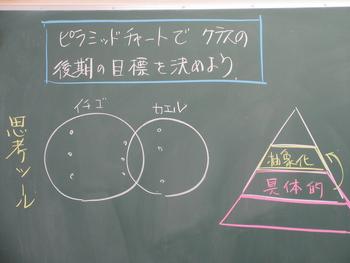 ピラミッドチャートで クラスの
後期の目標を決めよう.
イチゴ
カエル
思考ツール
抽象化
具体的